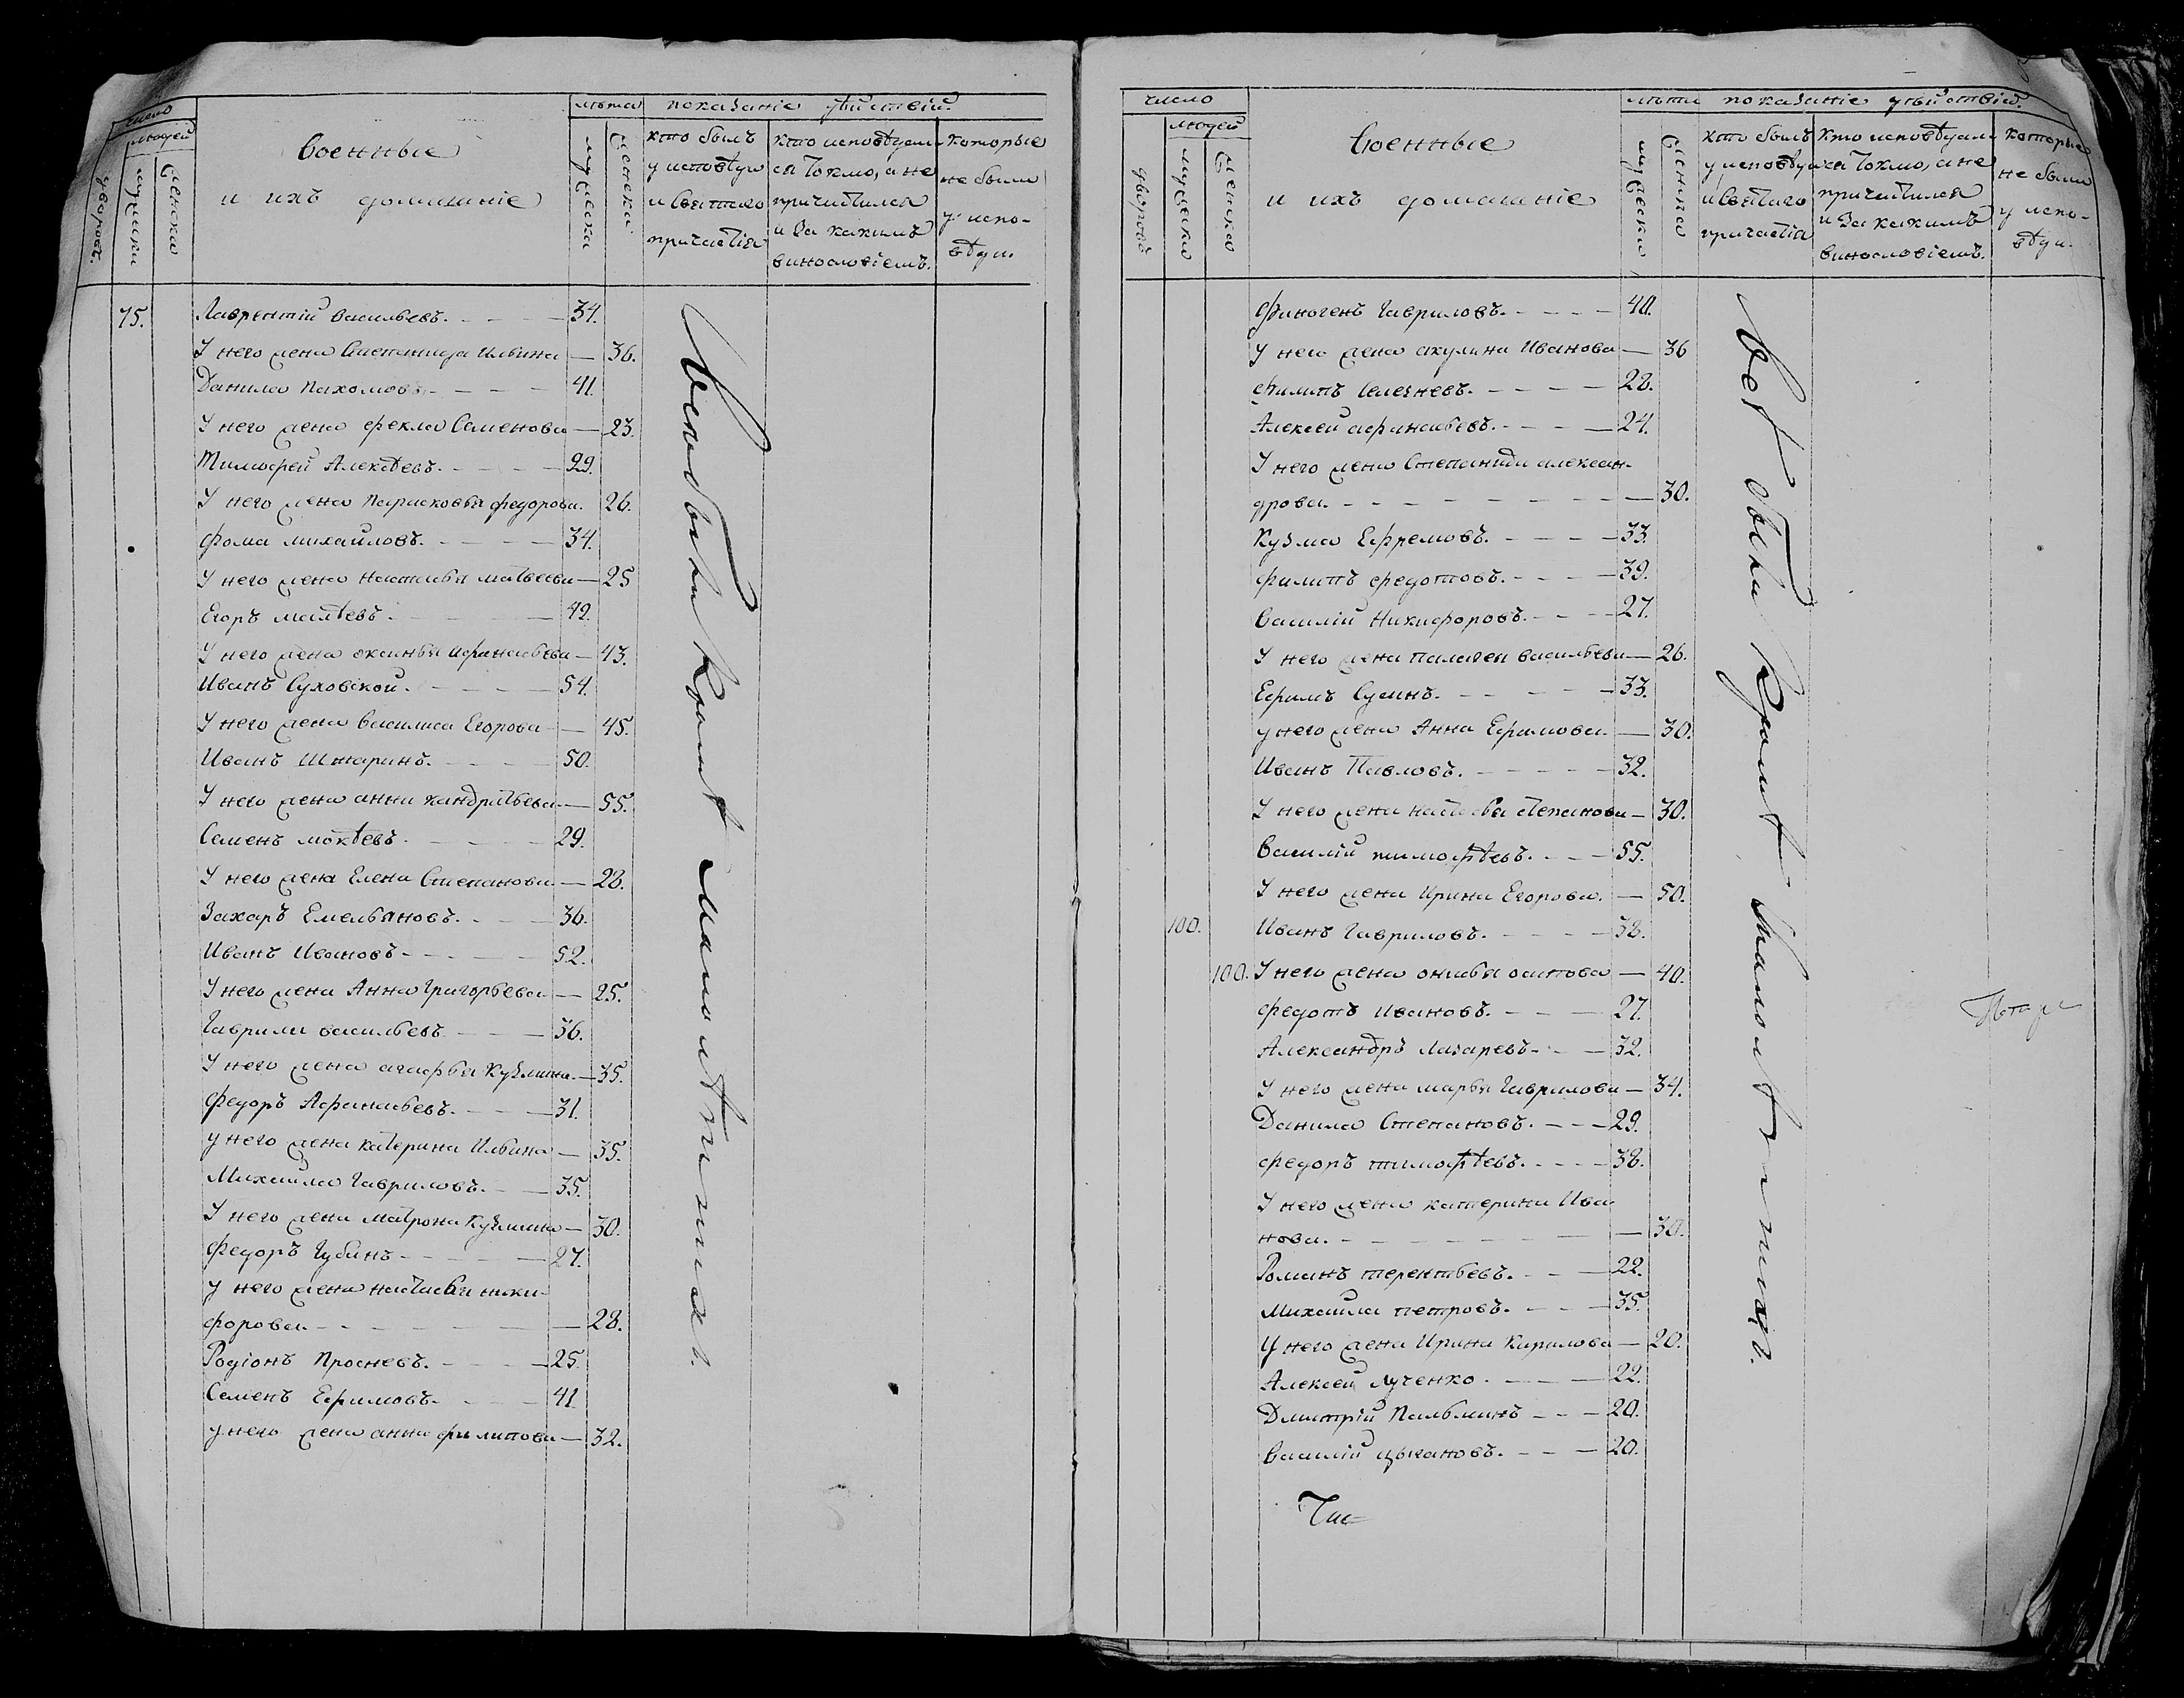 число
людей
дворовъ.
мужска
женска
военныя
и ихъ домашніе
лѣта
мужеска
женска
показаніе дѣйствій.
кто былъ
у исповѣди
и святаго
причастія
кто исповѣдал-
ся токмо, а не
причастился
и за какимъ
винословіемъ.
которые
не были
у испо-
вѣди.
75. Лаврентій васильевъ. 34.
У него жена Степанида Ильина 36.
Данила Пахомовъ 41.
У него жена Фекла Семенова 23.
Тимофей Алексѣевъ. 29.
У него жена Парасковья федорова. 26.
Фома михайловъ. 34.
У него жена настасья матвеева 25
Егоръ 42.
У него жена оксинья Афанасьева 43.
Иванъ Суховской. 54.
У него жена василиса Егорова 45.
Иванъ 50.
У него жена анна кандратьева 55.
Семенъ мокѣевъ. 29.
У него жена Елена Степанова 28.
Захаръ Емельяновъ. 36.
Иванъ Ивановъ 52.
У него жена Анна Григорьева 25.
Гаврила васильевъ 36.
У него жена агафья Кузмина. 35.
Федоръ Афанасьевъ. 31.
у него жена катерина Ильина 35.
Михаила Гавриловъ. 35.
У него жена матрона Кузмина 30.
Федоръ Губинъ 27.
у него жена настасья ники-
форова 28.
Родіонъ 25.
Семенъ Ефимовъ. 41.
у него жена анна филипова 32.
всѣ были кромѣ малолѣтнихъ.
число
людей
дворовъ
мужеска
женска
военныя
и ихъ домашніе
лѣта
мужеска
женска
показаніе дѣйствій.
кто былъ
у исповѣди
и святаго
причастія
кто исповѣдал-
ся токмо, а не
причастился
и за какимъ
винословіемъ.
которые
не были
у испо-
вѣди.
Финогенъ Гавриловъ. 40.
У него жена акулина Иванова 36
Филипъ Селезневъ. 28.
Алексей афанасьевъ. 24.
У него жена Степанида алексан-
дрова. 30.
Кузма Ефремовъ. 33.
Филипъ федотовъ. 39.
Василій Никифоровъ. 27.
У него жена палагея васильева 26.
Ефимъ Сусинъ. 33.
у него жена Анна Ефимова 30.
Иванъ Павловъ. 32.
У него жена настасья степанова 30.
Василій тимофѣевъ. 55.
У него жена Ирина Егорова. 50.
100. Иванъ Гавриловъ. 38.
100. У него жена онисья осипова 40.
Федотъ Ивановъ. 27.
Александръ Лазаревъ. 32.
У него жена марья Гаврилова 34.
Данила Степановъ. 29.
Федоръ тимофѣевъ. 38.
У него жена катерина Ива
нова. 30.
Романъ терентьевъ. 22.
Михаила петровъ. 35.
У него жена Ирина Кирилова 20.
Алексей Лученко. 22.
Дмитрій Пальминъ 20.
Василій цыкановъ. 20.
всѣ были кромѣ малолѣтнихъ.